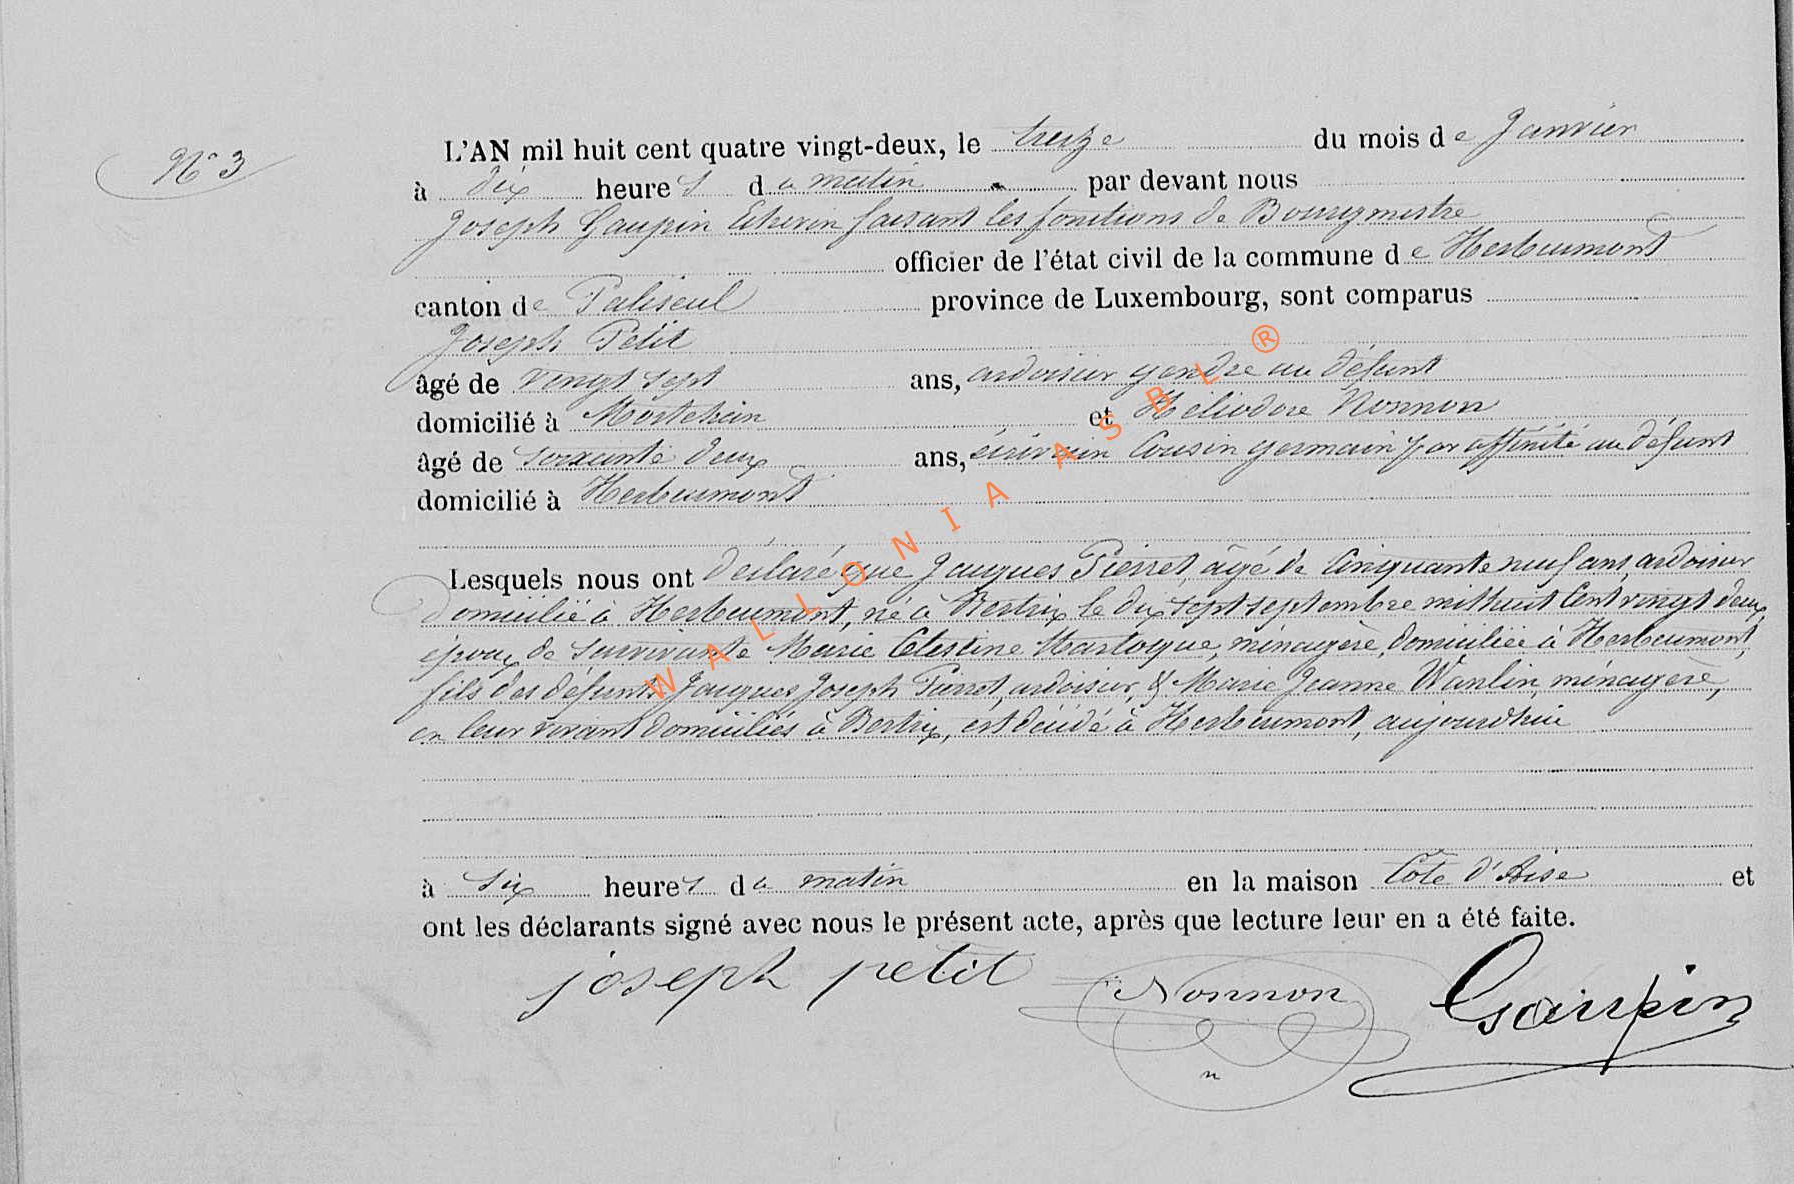 N° 3
L'AN mil huit cent quatre vingt-deux, le treize du mois de Janvier
à dix heures du matin par devant nous
Joseph Gaupin Echevin faisant les fonctions de Bourgmestre
officier de l'état civil de la commune de Herbeumont
canton de Paliseul province de Luxembourg, sont comparus
Joseph Petit
âgé de vingt sept ans, ardoisier gendre au défunt
domicilié à Mortehan et Héliodore Nonnon
âgé de soixante deux ans, écrivain Cousin germain par affinité au défunt
domicilié à Herbeumont
Lesquels nous ont déclaré que Jacques Pierret, âgé de Cinquante neuf ans, ardoisier
domicilié à Herbeumont, né à Bertrix le dix sept septembre mil huit Cent vingt deux,
époux de survivante Marie Célestine Marloque, ménagère, domiciliée à Herbeumont,
fils des défunts Jacques Joseph Pierret, ardoisier, & Marie Jeanne Wanlin, ménagère,
en leur vivant domiciliés à Bertrix, est décédé à Herbeumont, aujourdhui
à six heures du matin en la maison Côte d'Aise et
ont les déclarants signé avec nous le présent acte, après que lecture leur en a été faite.
joseph petit Nonnon Gaupin
WALLONIA ASBL ®